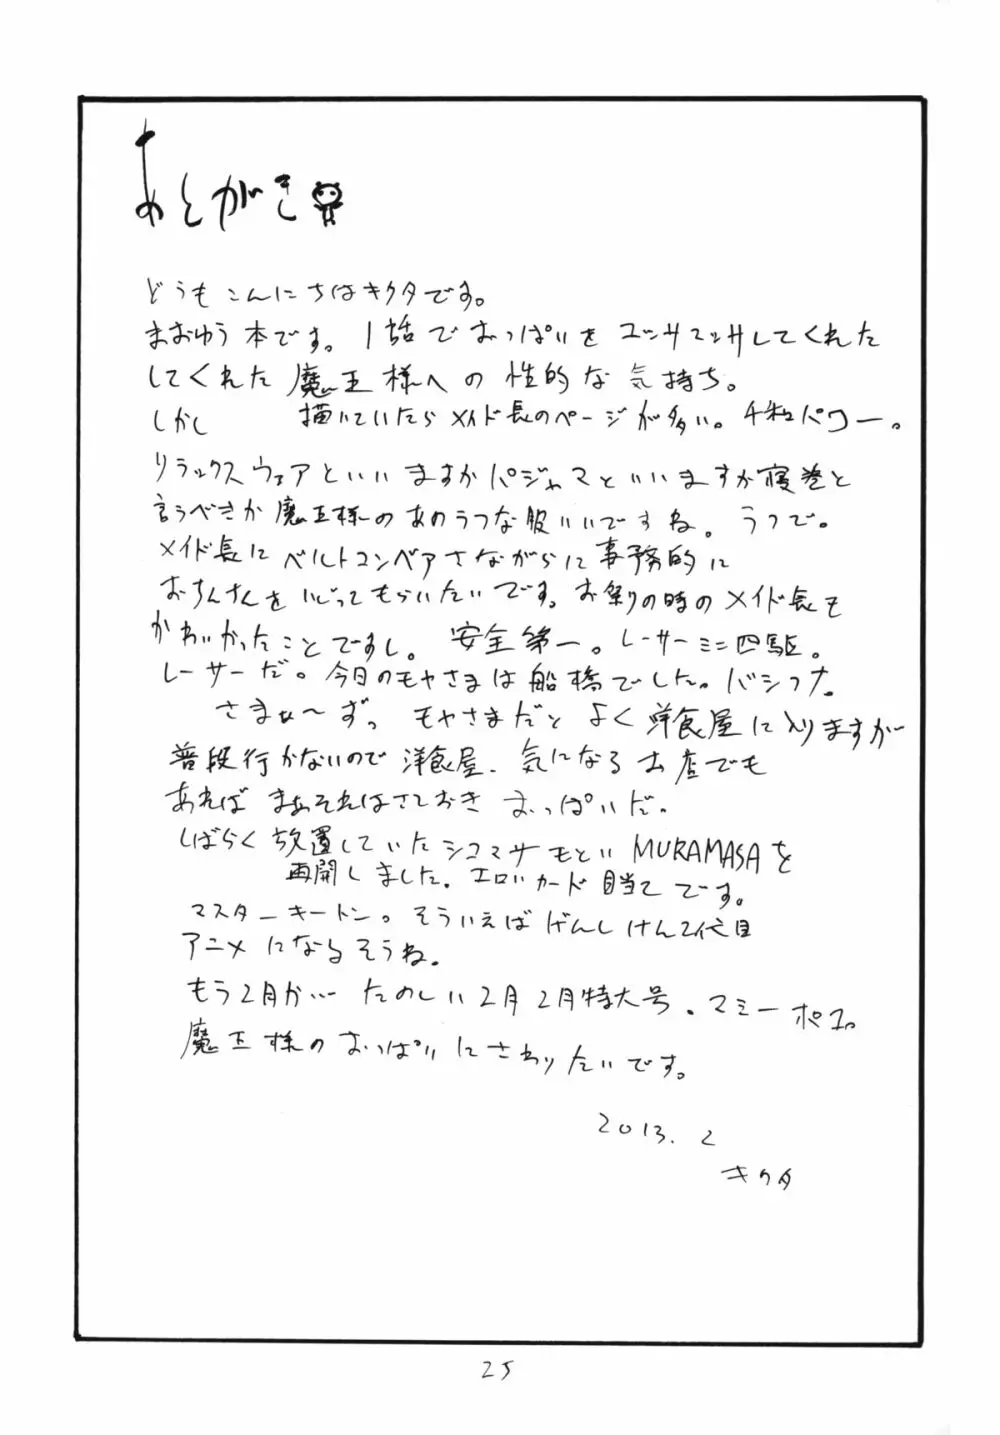 あとがき
どうもこんにちはキクタです。
まおゆう本です。1話でおっぱいをユッサユッサしてくれた
してくれた 魔王様への性的な気持ち。
しかし 描いていたらメイド長のページが多い。千和パワー。
リラックスウェアといいますかパジャマといいますか寝巻と
言うべきか魔王様のあのうつな服いいですね。うつで。
メイド長にベルトコンベアさながらに事務的に
おちんちんをいじってもらいたいです。お祭りの時のメイド長も
かわいかったことですし。安全第一。レーサーミニ四駆。
レーサーだ。今日のモヤさまは船橋でした。バシフナ。
さまぁ〜ずっ モヤさまだと よく洋食屋に入りますが
普段行かないので洋食屋、気になるお店でも
あれば まぁそれはさておき おっぱいだ。
しばらく放置していたシコマサもといMURAMASAを
再開しました。エロいカード目当てです。
マスターキートン。そういえばげんしけん2代目
アニメになるそうね。
もう2月か… たのしい2月2月特大号。マミーポコ。
魔王様のおっぱいにさわりたいです。
2013.2
キクタ
25